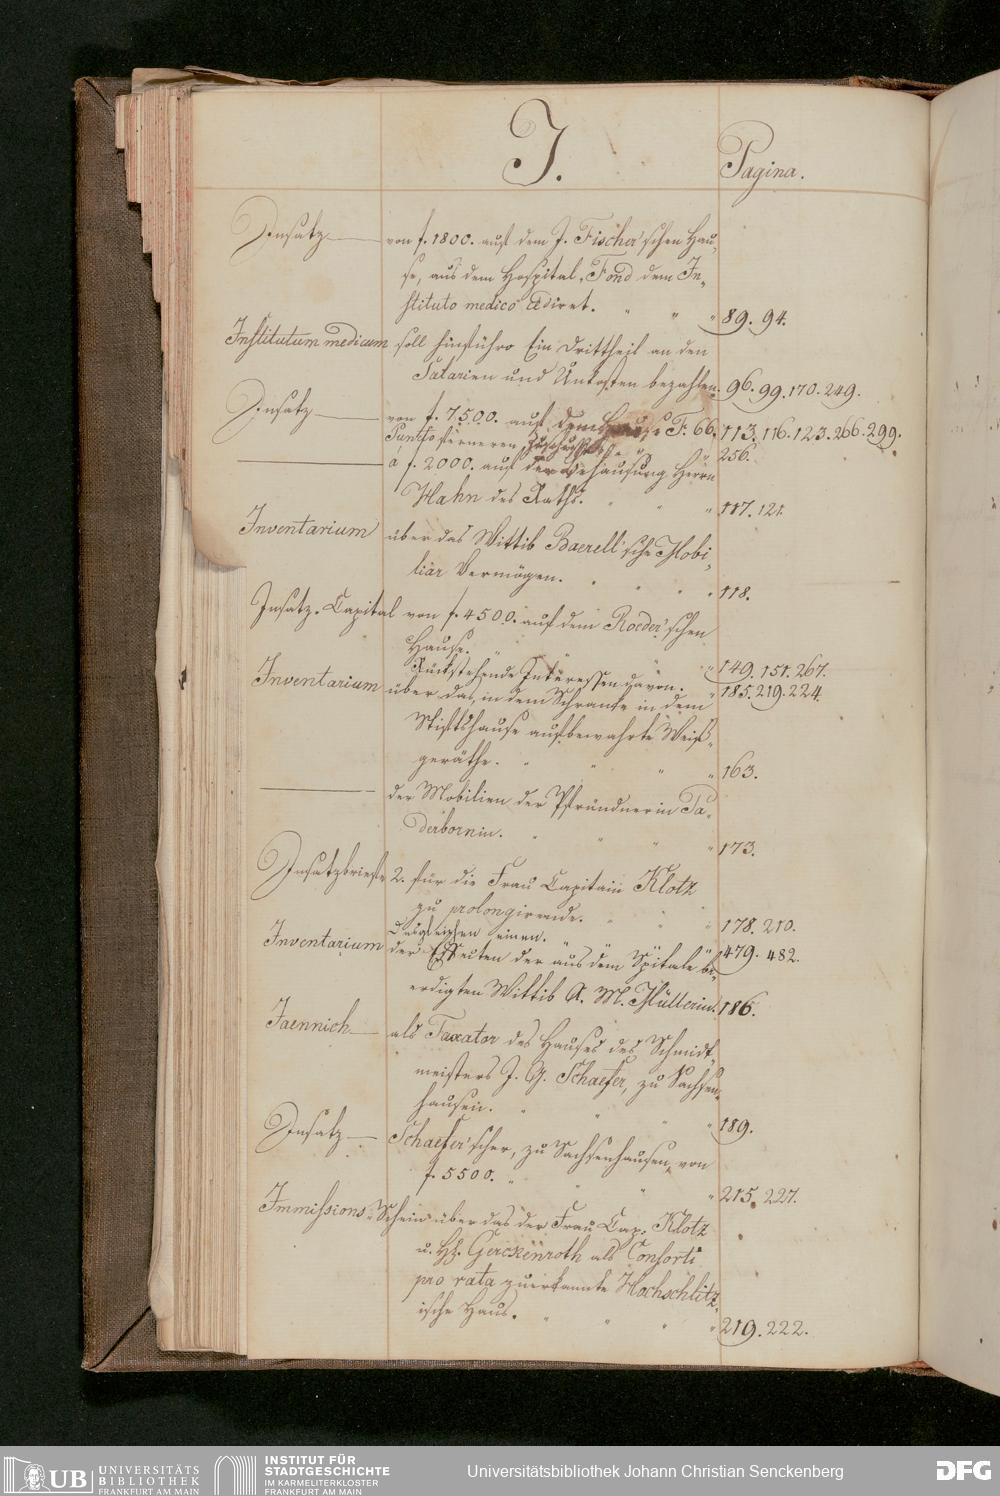 J.
Pagina.
Insatz von f. 1800. auf dem J. Fischer'schen Hau,
se, aus dem Hospital-Fond dem In-
stituto medico cediret. 89. 94.
Institutum medicum soll hinführo Ein Drittheil an den
Salarien und Unkosten bezahlen. 96. 99. 170. 249.
Insatz von f. 7500. auf dem Hause F. 66. 113. 116. 123. 266. 299.
Puncto ferneren 256.
à f. 2000. auf der Behausung Herrn
Hahn des Raths. 117. 121.
Inventarium über das Wittib Baerell'sche Mobi,
liar Vermögen. 118.
Insatz-Capital von f. 4500. auf dem Roeder'schen
Hause. 149. 151. 267.
Rückstehende Interessen davon. 185. 219. 224.
Inventarium über das, in dem Schranke in dem
Stiftshause aufbewahrte Weiß-
geräthe. 163.
der Mobilien der Pfründnerin Pa,
derbornin. 173.
Insatzbriefe 2. für die Frau Capitain Klotz
zu prolongirende. 178. 210.
Desgleichen einen. 479. 482.
Inventarium der Effecten der aus dem Spitale be-
erdigten Wittib A. M. Müllerin. 186.
Jaennich als Taxator des Hauses des Schmidt,
meisters J. G. Schaefer, zu Sachsen,
hausen. 189.
Insatz Schaefer'scher, zu Sachsenhausen, von
f. 5500. 215. 227.
Immissions-Schein über das der Frau Cap. Klotz
u. H. Gerckenroth als Consorti
pro rata zuerkannte Hochschlitz,
ische Haus. 219. 222.
UB UNIVERSITÄTS
BIBLIOTHEK
FRANKFURT AM MAIN
INSTITUT FÜR
STADTGESCHICHTE
IM KARMELITERKLOSTER
FRANKFURT AM MAIN
Universitätsbibliothek Johann Christian Senckenberg
DFG